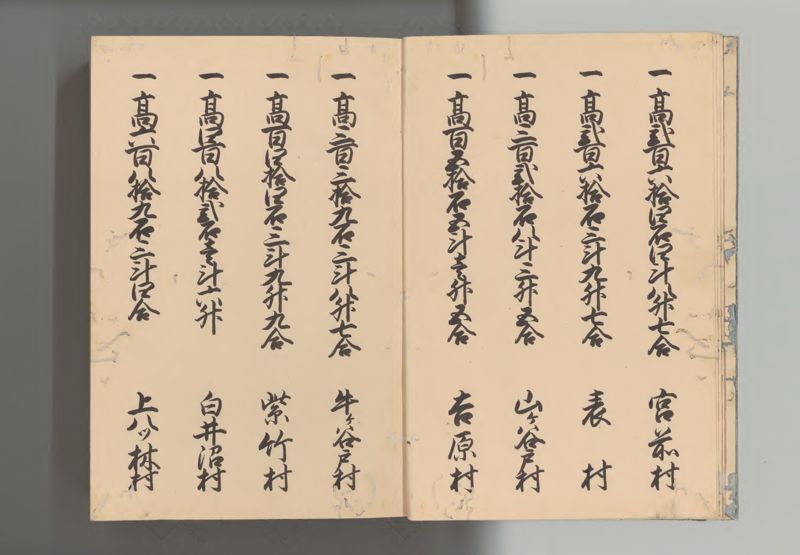 一高弐百六拾四石四斗八升七合 宮前村
一高弐百六拾石三斗九升七合 表村
一高三百弐拾石八斗三升五合 山ヶ谷戸村
一高百五拾石五斗壱升五合 吉原村
一高三百三拾九石三斗八升七合 牛ヶ谷戸村
一高百四拾四石三斗九升九合 紫竹村
一高四百八拾弐石壱斗六升 白井沼村
一高六百八拾九石三斗四合 上八ツ林村